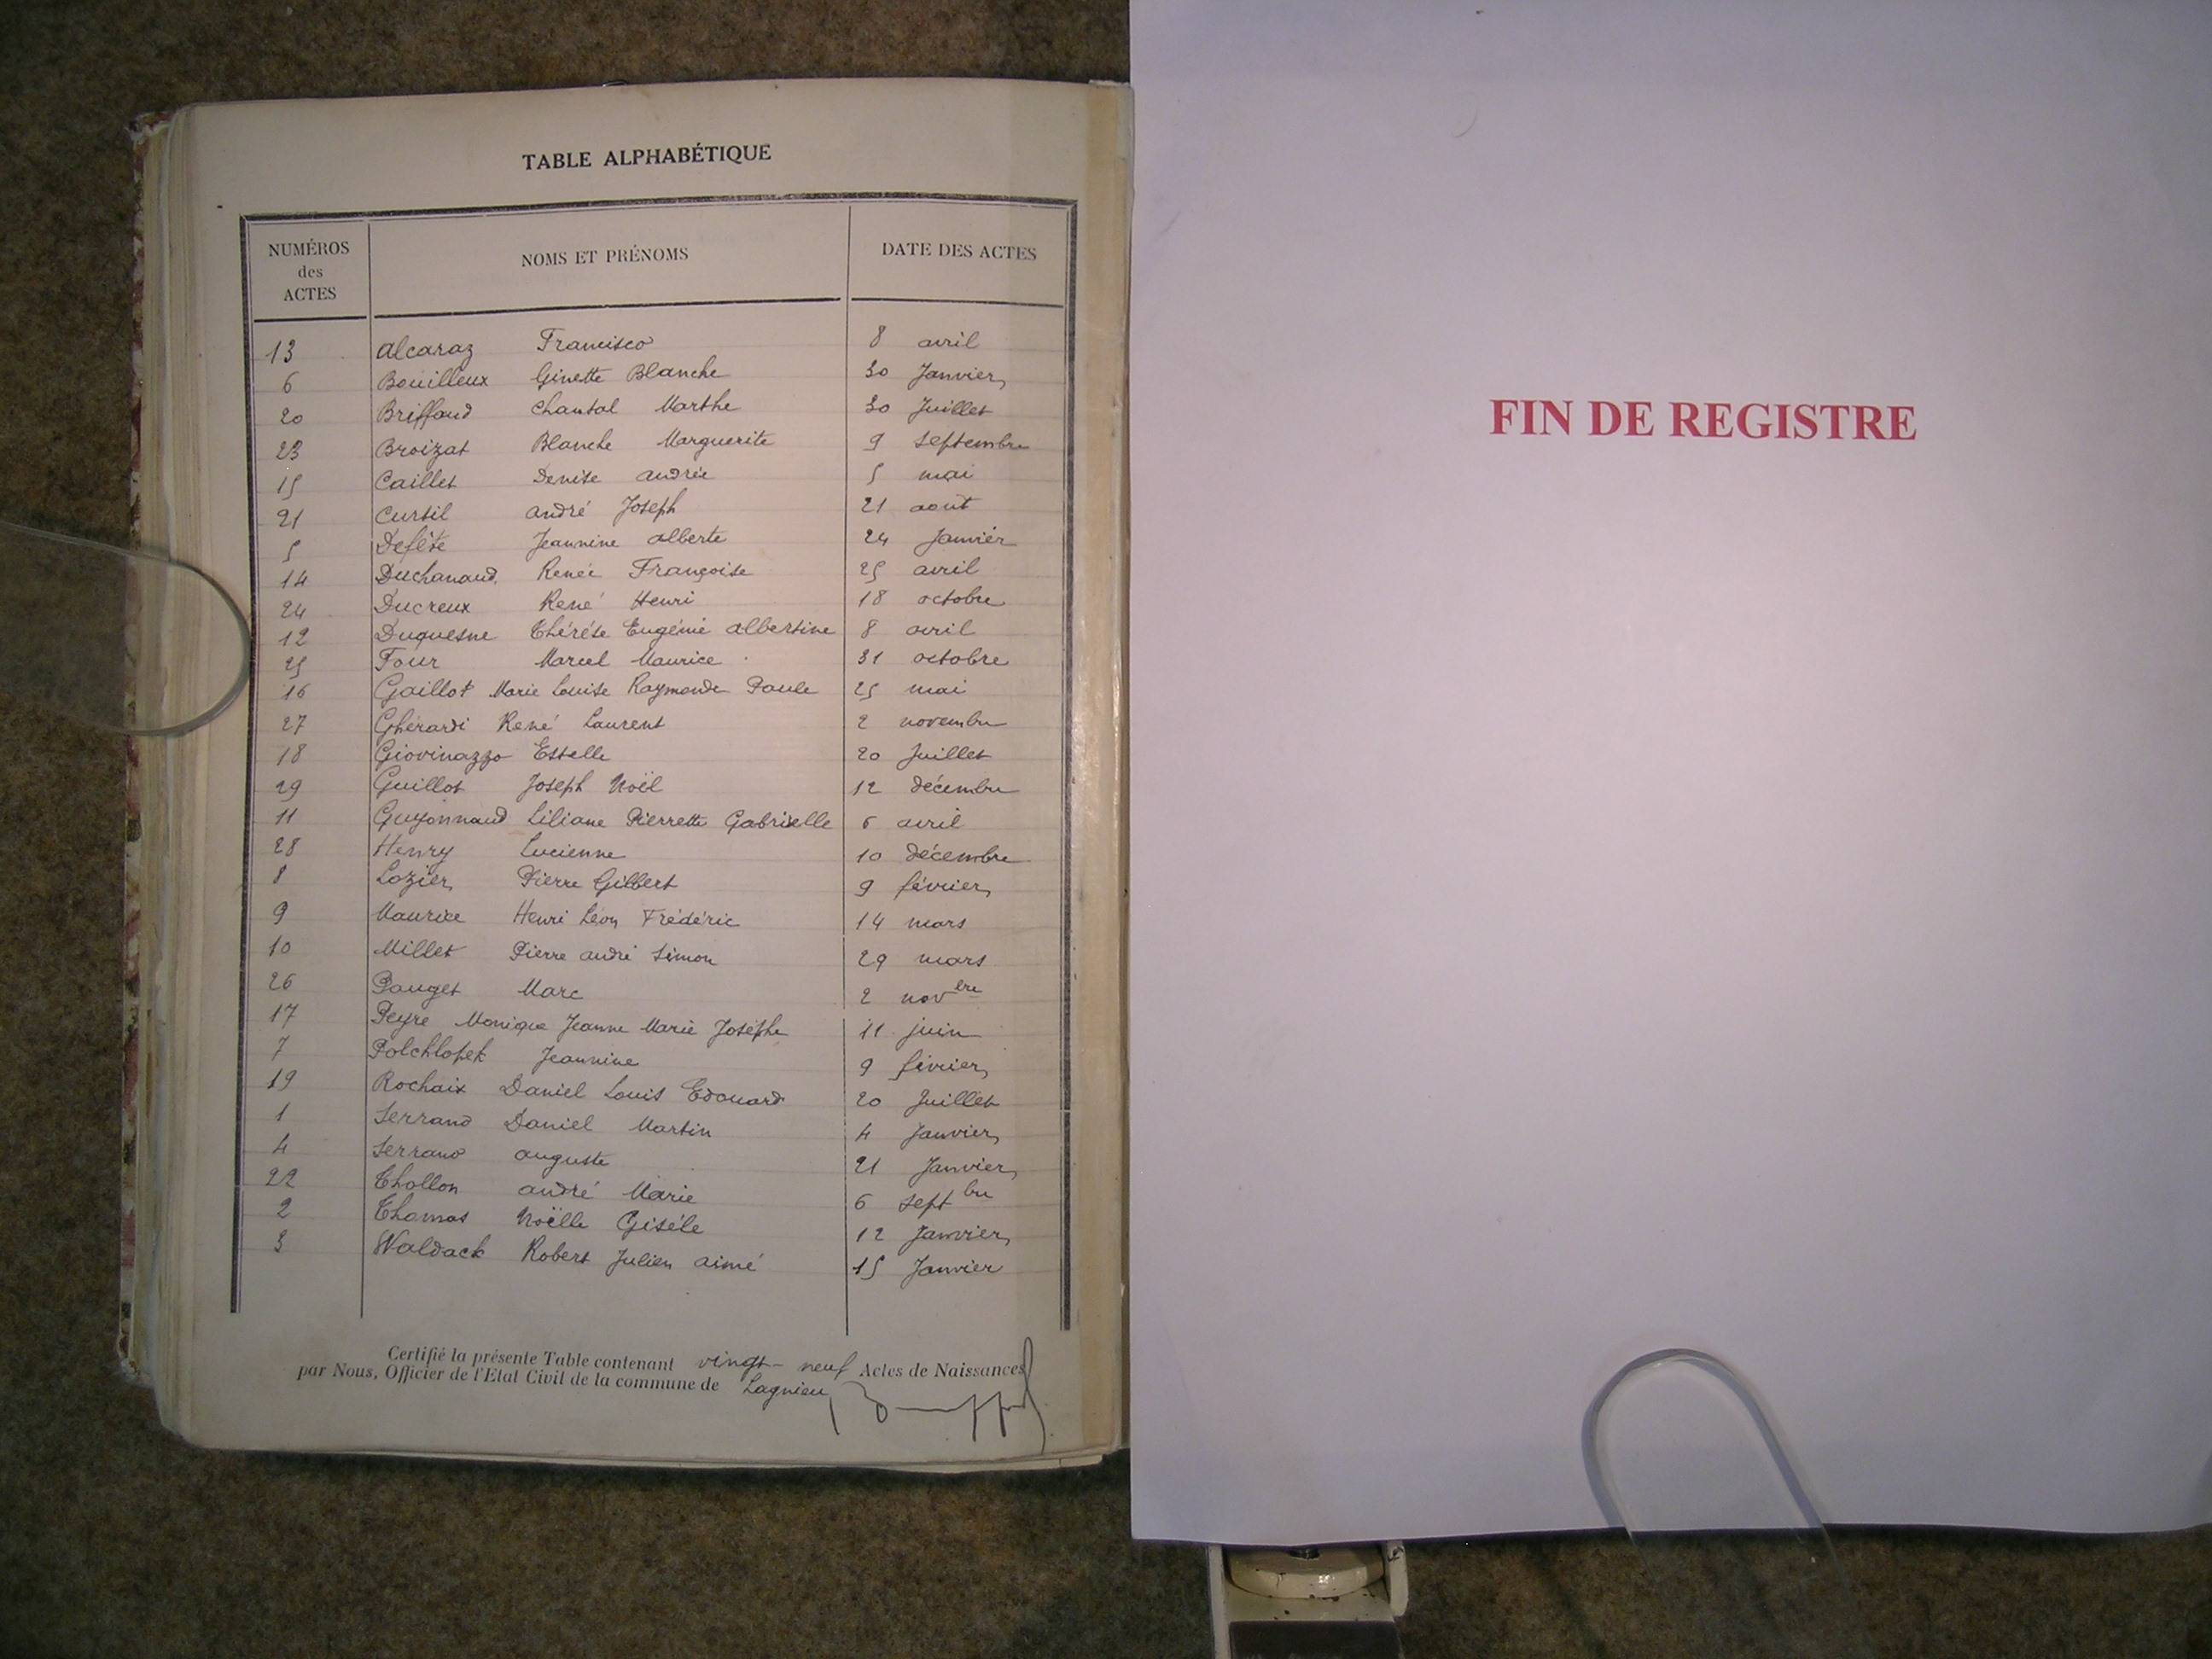 TABLE ALPHABÉTIQUE
NUMÉROS des ACTES NOMS ET PRÉNOMS DATE DES ACTES
13 Alcaraz Francisco 8 avril
6 Bouilleux Ginette Blanche 30 Janvier
20 Briffaud Chantal Marthe 30 Juillet
23 Broizat Blanche Marguerite 9 septembre
15 Caillet Denise Andrée 5 mai
21 Curtil André Joseph 21 août
5 Jeannine Alberte 24 Janvier
14 Duchanaud Renée Françoise 25 avril
24 Ducreux René Henri 18 octobre
12 Duquesne Thérèse Eugénie Albertine 8 avril
25 Four Marcel Maurice 31 octobre
16 Gaillot Marie Louise Raymonde Paule 25 mai
27 Ghérardi René Laurent 2 novembre
18 Giovinazzo Estelle 20 Juillet
29 Guillot Joseph Noël 12 décembre
11 Guyonnaud Liliane Pierrette Gabrielle 6 avril
28 Henry Lucienne 10 décembre
8 Lozier Pierre Gilbert 9 février
9 Maurice Henri Léon Frédéric 14 mars
10 Millet Pierre André Simon 29 mars
26 Pauget Marc 2 novbre
17 Peyre Monique Jeanne Marie Josèphe 11 juin
7 Polchlopek Jeannine 9 février
19 Rochaix Daniel Louis Edouard 20 Juillet
1 Serrand Daniel Martin 4 Janvier
4 Serrano Auguste 21 Janvier
22 Thollon André Marie 6 septbre
2 Thomas Noëlle Gisèle 12 Janvier
3 Waldack Robert Julien Aimé 15 Janvier
Certifié la présente Table contenant vingt-neuf Actes de Naissances
par Nous, Officier de l'Etat Civil de la commune de Lagnieu
FIN DE REGISTRE